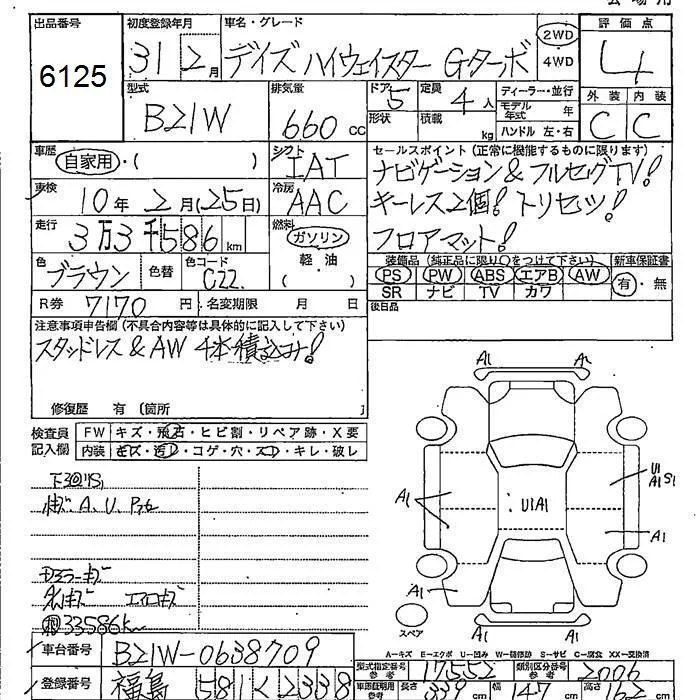 会場用
出品番号 初度登録年月 車名・グレード 評価点
6125 31 2月 デイズ ハイウェイスター Gターボ 2WD 4WD 4
型式 排気量 ドア 定員 ディーラー・並行 外装 内装
B21W 660cc 5 4人 モデル年式 年 C C
形状 積載 kg ハンドル 左・右
車歴 シフト セールスポイント(正常に機能するものに限ります)
自家用・( ) IAT ナビゲーション&フルセグTV!
車検 冷房 キーレス2個!トリセツ!
10年 2月(25日) AAC フロアマット!
走行 燃料
3万3千586km ガソリン
色 色替 色コード 軽・油 装備品(純正品に限り○をつけて下さい) 新車保証書
ブラウン C22 ( ) PS PW ABS エアB AW 有・無
SR ナビ TV カワ
R券 7170円 名変期限 月 日 後日品
注意事項申告欄(不具合内容等は具体的に記入して下さい)
スタッドレス&AW 4本積込み!
修復歴 有(箇所 )
検査員記入欄 FW キズ・飛石・ヒビ割・リペア跡・X要
内装 キズ・汚レ・コゲ・穴・スレ・キレ・破レ
A.U.
33586km
A1 A1
U1 A1 S1
A1 U1A1
A1
A1 A1
スペア
A-キズ E-エクボ U-凹み W-補修跡 S-サビ C-腐食 XX-交換済
車台番号 B21W-0638709
型式指定番号 参考 17552 類別区分番号 参考 2006
登録番号 福島 581 く 2338
車両証明用 参考 長さ 339cm 幅 147cm 高さ 162cm